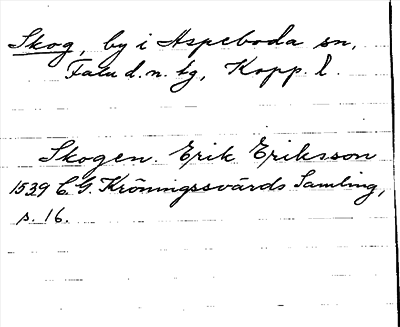 Skog, by i Aspeboda sn,
Falu d. n. tg, Kopp. l.
Skogen. Erik Eriksson
1539 C. G. Kröningssvärds Samling,
s. 16.